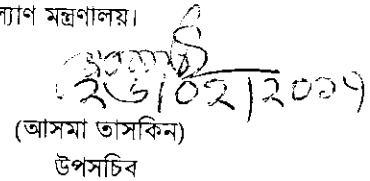 ল্যাণ মন্ত্রণালয়।
২৬/০২/২০১৭
(আসমা তাসকিন)
উপসচিব